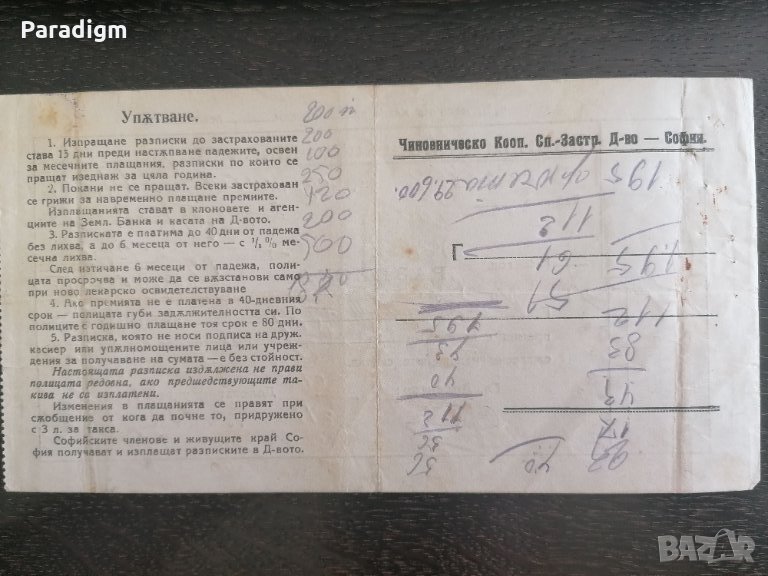 Paradigm
Упѫтване.
1. Изпращане разписки до застрахованите
става 15 дни преди настѫпване падежите, освен
за месечните плащания, разписки по които се
пращат изеднаж за цяла година.
2. Покани не се пращат. Всеки застрахован
се грижи за навременно плащане премиите.
Изплащанията стават в клоновете и аген-
циите на Земл. Банка и касата на Д-вото.
3. Разписката е платима до 40 дни от падежа
без лихва, а до 6 месеца от него — с ½% ме-
сечна лихва.
След изтичане 6 месеци от падежа, поли-
цата просрочва и може да се вѫзстанови само
при ново лекарско освидетелствуване
4. Ако премията не е платена в 40-дневния
срок — полицата губи задължителността си. По
полиците с годишно плащане тоя срок е 80 дни.
5. Разписка, която не носи подписа на друж.
касиер или упѫлномощените лица или учреж-
дения за получаване на сумата — е без стойност.
Настоящата разписка издължена не прави
полицата редовна, ако предшедствующите та-
кива не са изплатени.
Изменения в плащанията се правят при
съобщение от кога да почне то, придружено
с 3 л. за такса.
Софийските членове и живущите край Со-
фия получават и изплащат разписките в Д-вото.
200
200
100
250
120
200
500
Чиновническо Кооп. Сп.-Застр. Д-во — София.
195
29.600
112
Г
61
195
51
112
195
83
83
43
40
112
56
56
40
BAZAR